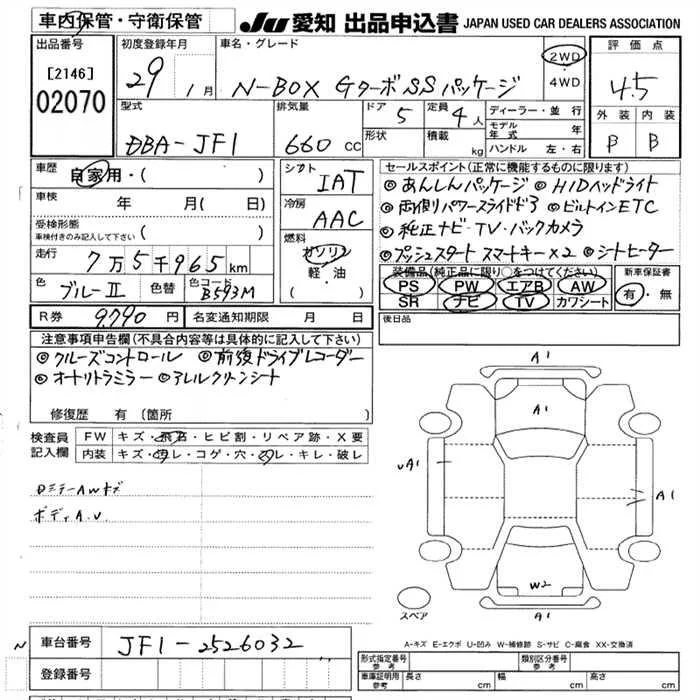 車内保管・守衛保管
JU 愛知 出品申込書 JAPAN USED CAR DEALERS ASSOCIATION
出品番号
[2146]
02070
初度登録年月
29 1月
車名・グレード
N-BOX GターボSSパッケージ
2WD
・
4WD
評価点
4.5
外装 内装
B B
型式
DBA-JF1
排気量
660 cc
ドア
5
形状
定員
4人
積載
kg
ディーラー・並行
モデル年式 年
ハンドル 左・右
車歴
自家用・( )
車検
年 月( 日)
受検形態
車検付きのみ記入して下さい ( )
走行
7万5千965km
色
ブルーII
色替
色コード
B593M
シフト
IAT
冷房
AAC
燃料
ガソリン
軽・油
・( )
セールスポイント(正常に機能するものに限ります)
◎あんしんパッケージ ◎HIDヘッドライト
◎両側パワースライドドア ◎ビルトインETC
◎純正ナビ・TV・バックカメラ
◎プッシュスタート スマートキー×2 ◎シートヒーター
装備品(純正品に限り○をつけてください)
PS PW エアB AW
SR ナビ TV カワシート
新車保証書
有・無
R券 9,790 円
名変通知期限 月 日
後日品
注意事項申告欄(不具合内容等は具体的に記入して下さい)
◎クルーズコントロール ◎前後ドライブレコーダー
◎オートリトラミラー ◎アレルクリンシート
修復歴 有(箇所 )
検査員記入欄
FW キズ・飛石・ヒビ割・リペア跡・X要
内装 キズ・汚レ・コゲ・穴・スレ・キレ・破レ
ドミラーAWキズ
ボディA.U.
A1
A1
uA1
A1
W2
A1
スペア
A-キズ E-エクボ U-凹み W-補修跡 S-サビ C-腐食 XX-交換済
N
車台番号 JF1-2526032
登録番号
形式指定番号
参考
類別区分番号
参考
車庫証明用
参考
長さ cm
幅 cm
高さ cm